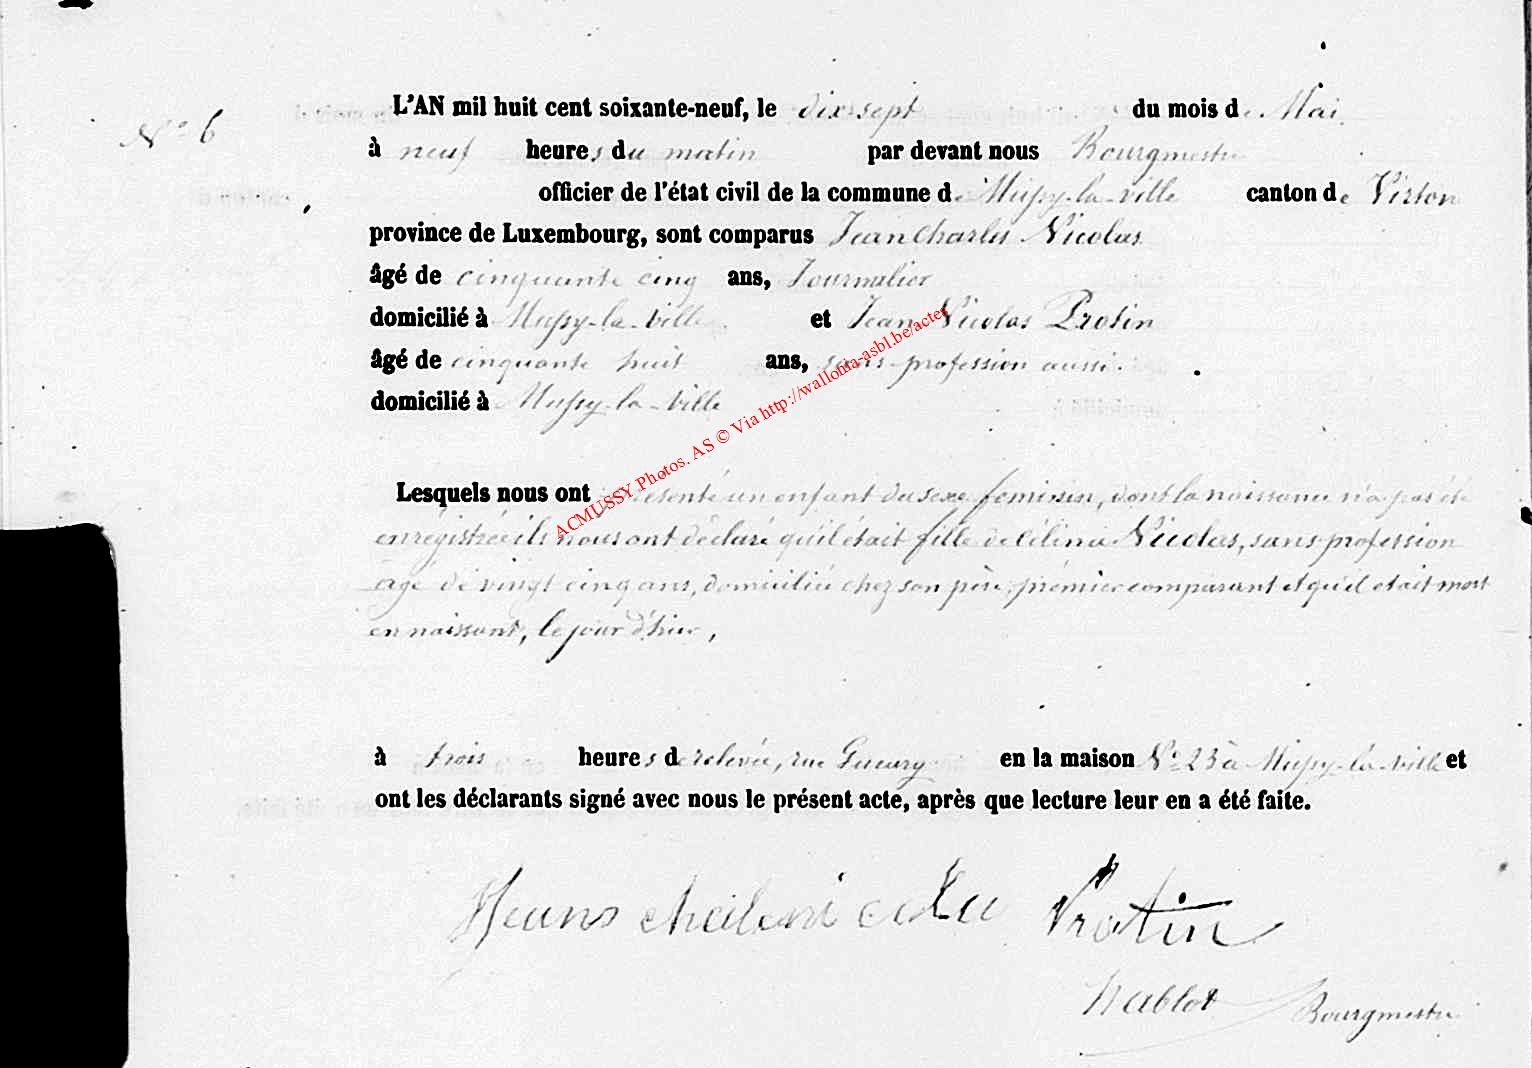 N° 6
L'AN mil huit cent soixante-neuf, le dix-sept du mois de Mai
à neuf heures du matin par devant nous Bourgmestre
officier de l'état civil de la commune de Mussy-la-ville canton de Virton
province de Luxembourg, sont comparus Jean Charles Nicolas
âgé de cinquante cinq ans, Journalier
domicilié à Mussy-la-Ville et Jean Nicolas Protin
âgé de cinquante huit ans, sans profession aussi
domicilié à Mussy-la-Ville
Lesquels nous ont présenté un enfant du sexe feminin, dont la naissance n'a pas été
enregistrée ils nous ont déclaré qu'il était fille de Célinie Nicolas, sans profession
agé de vingt cinq ans, domiciliée chez son père, prémier comparant et qu'il etait mort
en naissant, le jour d'hier,
à trois heures de relevée, rue en la maison N° 23 à Mussy-la-ville et
ont les déclarants signé avec nous le présent acte, après que lecture leur en a été faite.
Protin
Bourgmestre
ACMUSSY Photos. AS © Via http://wallonia-asbl.be/actes